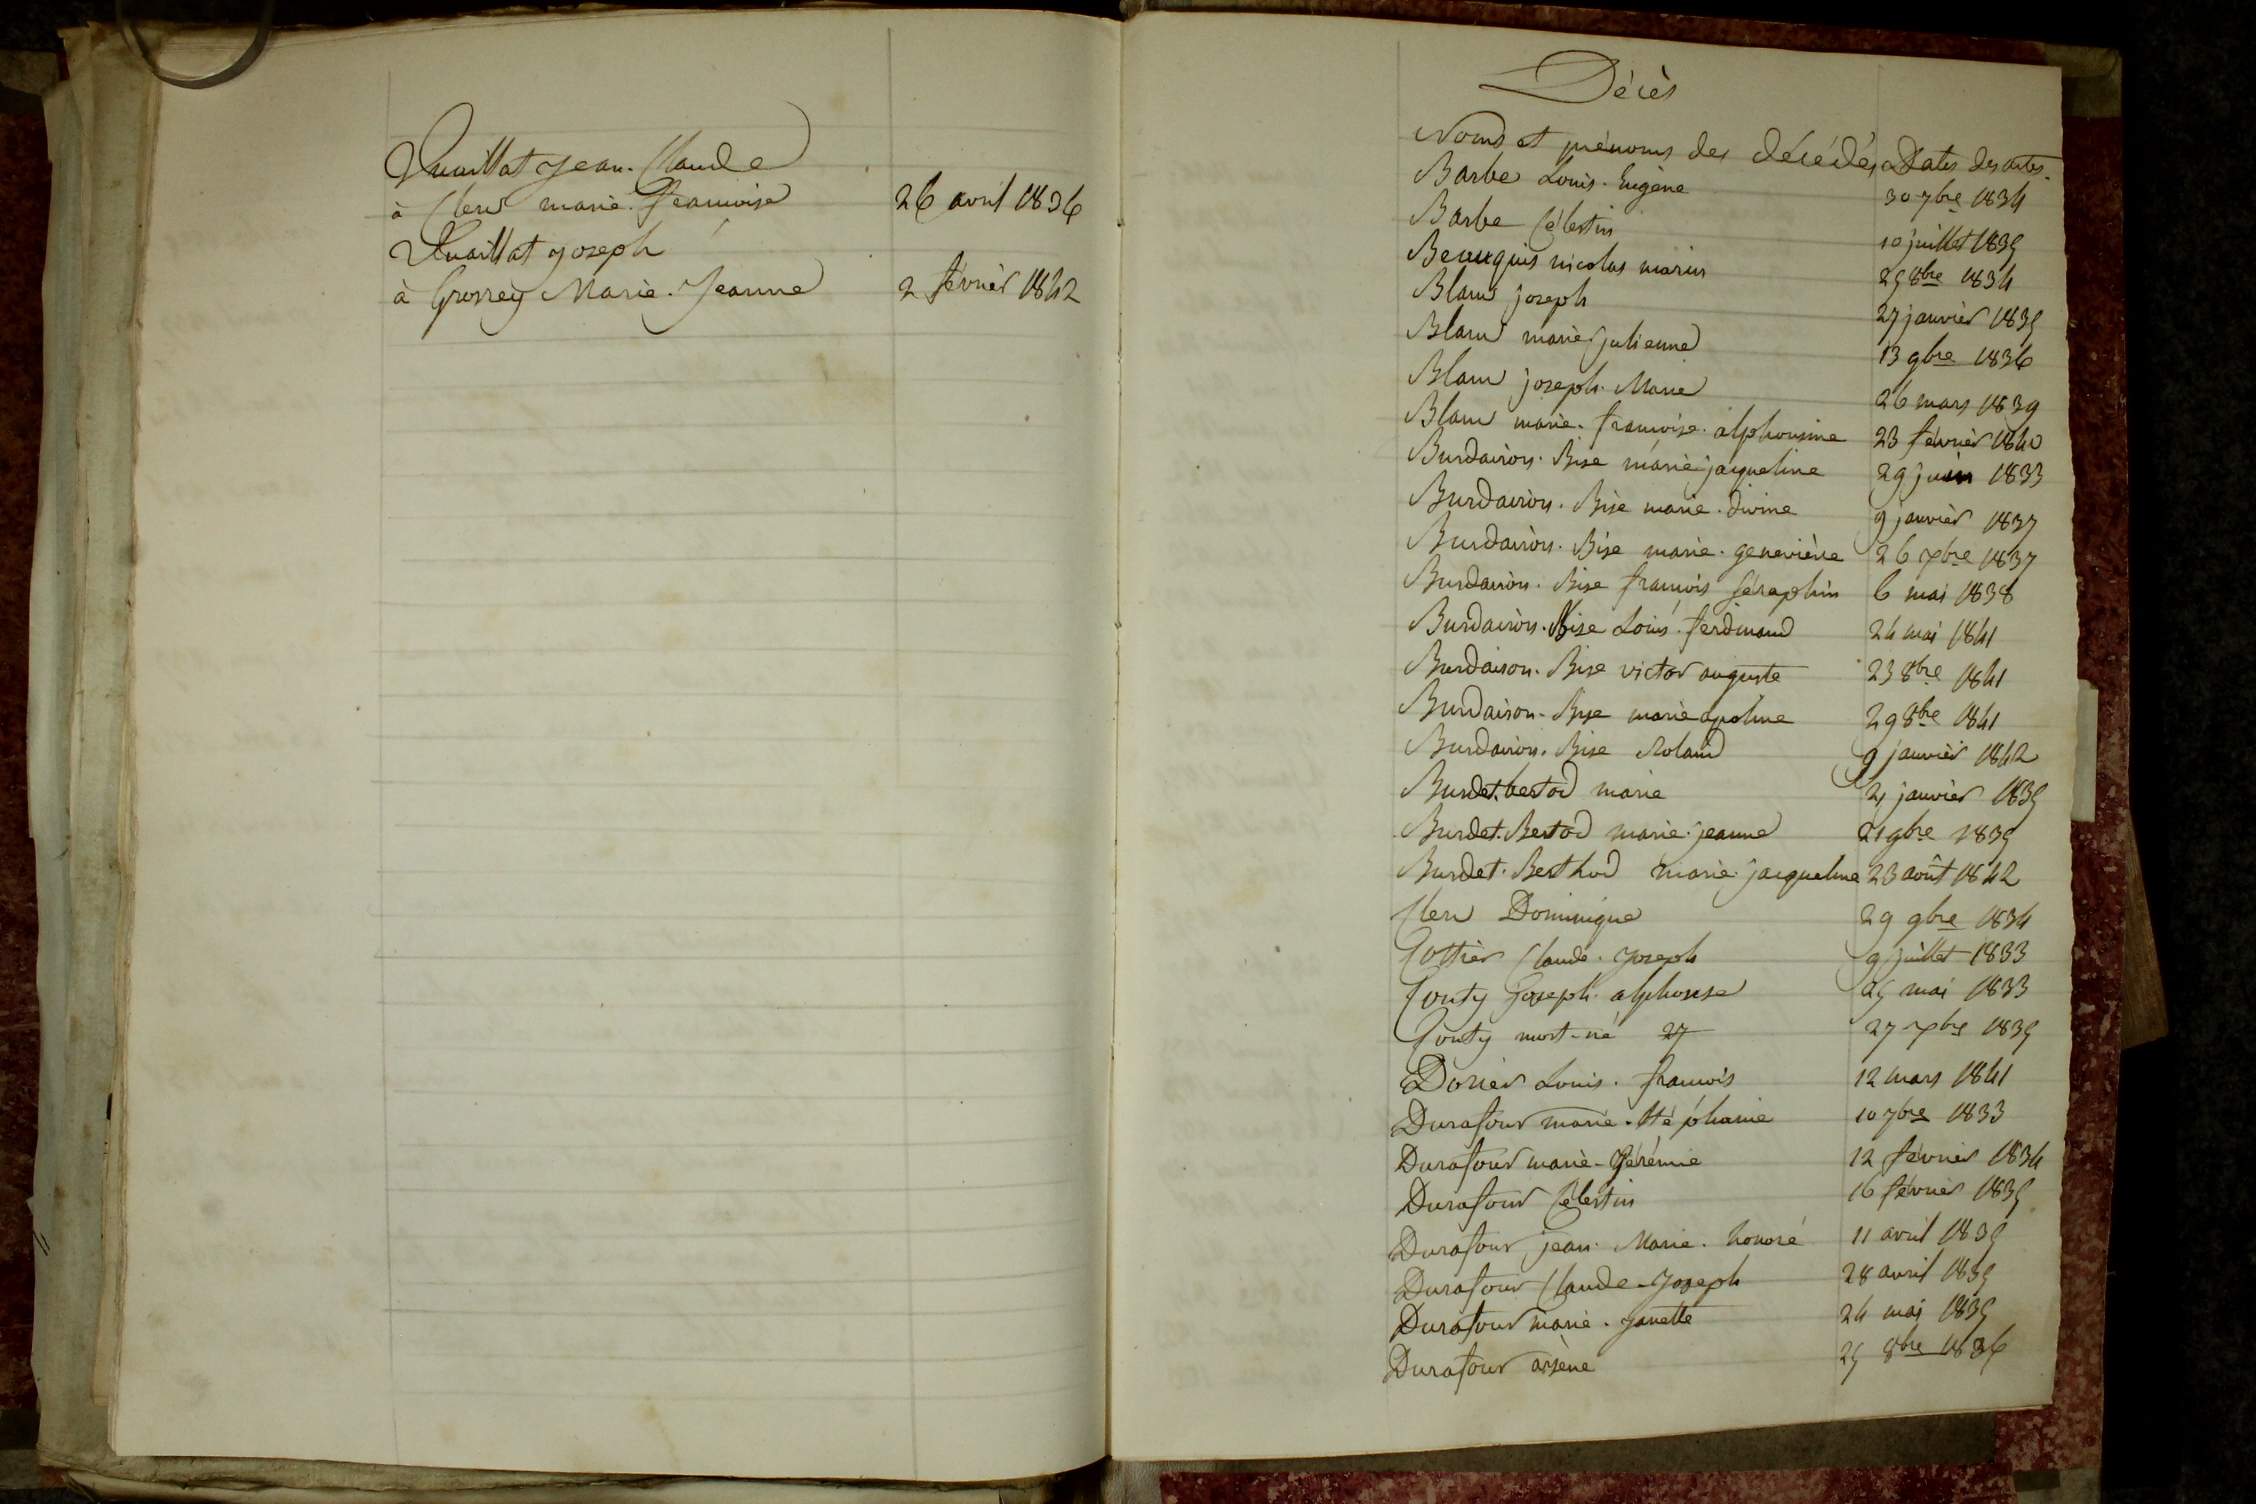 Vuaillat Jean-Claude
à Clerc marie-françoise 26 avril 1836
Vuaillat joseph
à Grossey Marie-Jeanne 2 février 1842
Décès
Noms et prénoms des décédés Dates des actes
Barbe Louis-Eugène 30 7bre 1834
Barbe Célestin 10 juillet 1835
Beauquis nicolas marin 25 8bre 1834
Blanc joseph 27 janvier 1835
Blanc marie julienne 13 9bre 1836
Blanc joseph-Marie 26 mars 1839
Blanc marie-françoise-alphonsine 23 février 1840
Burdairon-Bise marie jacqueline 29 juin 1833
Burdairon-Bise marie-divine 9 janvier 1837
Burdairon-Bise marie-geneviève 26 xbre 1837
Burdairon-Bise françois séraphin 6 mai 1838
Burdairon-Bise Louis-ferdinand 24 mai 1841
Burdairon-Bise victor auguste 23 8bre 1841
Burdairon-Bise marie apoline 29 8bre 1841
Burdairon-Bise Roland 9 janvier 1842
Burdet-bertod marie 21 janvier 1835
Burdet-Bertod marie-jeanne 21 9bre 1835
Burdet-Berthod marie-jacqueline 23 août 1842
Clerc Dominique 29 9bre 1834
Cottier Claude-Joseph 9 juillet 1833
Couty Joseph-alphonse 25 mai 1833
Couty mort-né 27 27 xbre 1835
Dorier Louis-françois 12 mars 1841
Durafour marie-stéphanie 10 7bre 1833
Durafour marie-Jérémie 12 février 1834
Durafour Célestin 16 février 1835
Durafour jean-Marie-honoré 11 avril 1835
Durafour Claude-Joseph 28 avril 1835
Durafour marie-Janette 24 mai 1835
Durafour arsène 25 8bre 1836